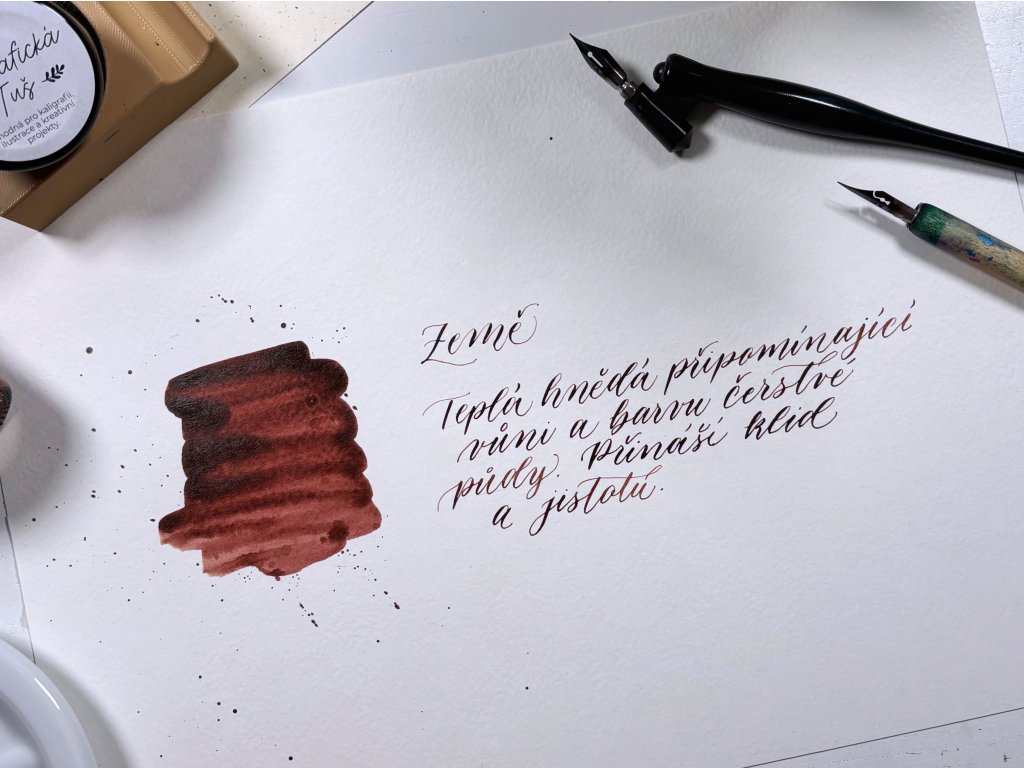 Tuš
ilustrace a kreativní
projekty.
Země
Teplá hnědá připomínající
vůni a barvu čerstvé
půdy. Přináší klid
a jistotu.